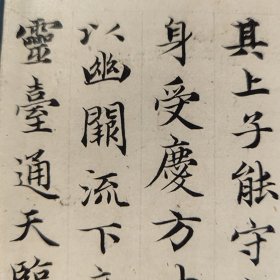 其上子能守
身受慶方
以幽關流下
靈臺通天臨